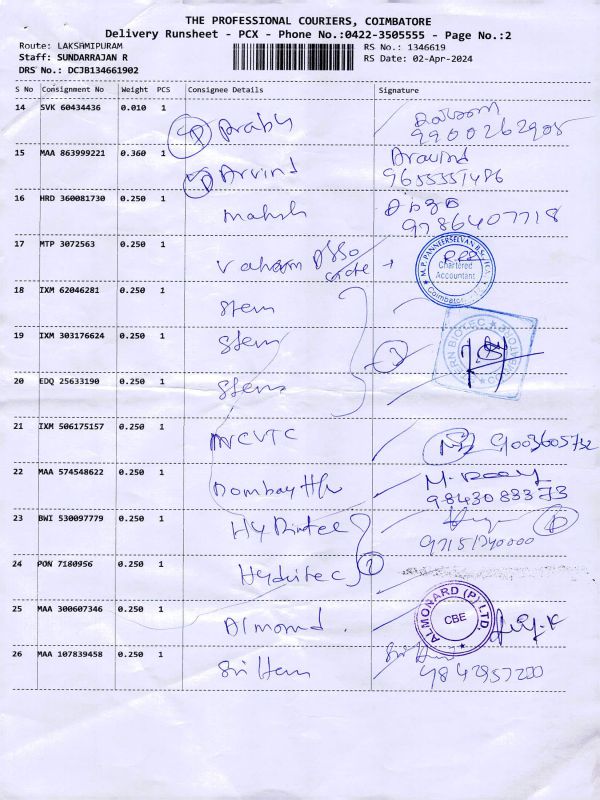 THE PROFESSIONAL COURIERS, COIMBATORE
Delivery Runsheet - PCX - Phone No.:0422-3505555 - Page No.:2
Route: LAKSAMIPURAM RS No.: 1346619
Staff: SUNDARRAJAN R RS Date: 02-Apr-2024
DRS No.: DCJB134661902
S No Consignment No Weight PCS Consignee Details Signature
14 SVK 60434436 0.010 1 Prabh
15 MAA 863999221 0.360 1 Arvind Aravind
16 HRD 360081730 0.250 1 Mahesh 9786407718
17 MTP 3072563 0.250 1 M.P. PANNEERSELVAN Chartered Accountant Coimbatore
18 IXM 62046281 0.250 1 Stem
19 IXM 303176624 0.250 1 Stem
20 EDQ 25633190 0.250 1 Stem
21 IXM 506175157 0.250 1 9003605732
22 MAA 574548622 0.250 1 Bombay 9843083373
23 BWI 530097779 0.250 1
24 PON 7180956 0.250 1
25 MAA 300607346 0.250 1 Almond ALMONARD (P) LTD. CBE
26 MAA 107839458 0.250 1 Sri Hem 9842957200